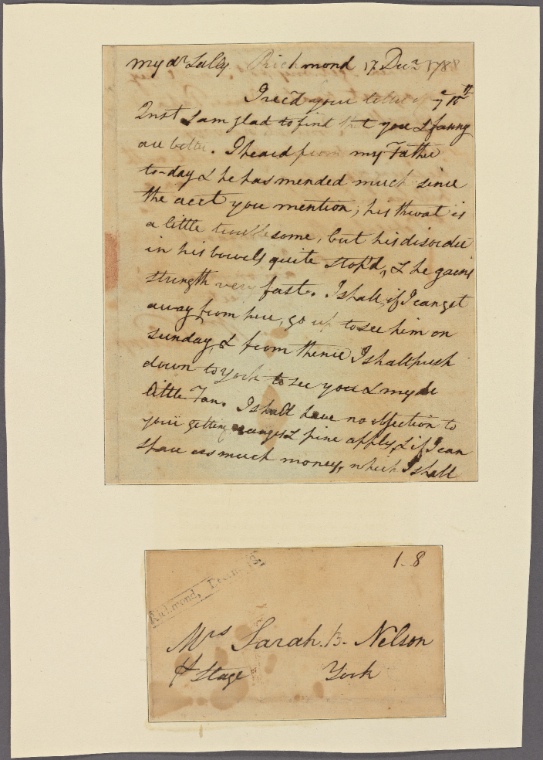 my dr Sally Richmond 17 Decr. 1788
I rec'd your letter of ye 10th
Inst I am glad to find that you & fanny
are better. I heard from my Father
to-day & he has mended much since
the acct you mention, his throat is
a little troublesome, but his disorder
in his bowels quite stop'd, & he gains
strength very fast. I shall, if I can get
away from here, go up to see him on
sunday & from thence I shall push
down to york to see you & my dr
little Fan. I shall have no objection to
your getting oranges & pine apples, if I can
spare as much money, which I shall
1.8
Richmond,
Mrs Sarah. B. Nelson
pr Stage York